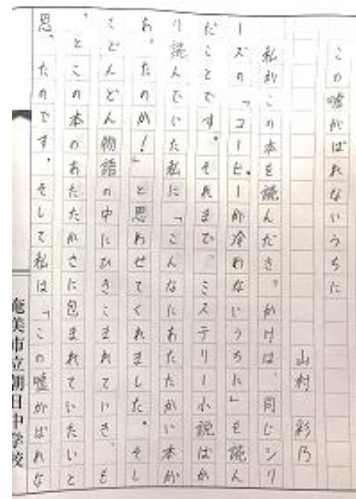 この嘘がばれないうちに
山村 彩乃
私がこの本を読んだきっかけは、同じシリ
ーズの「コーヒーが冷めないうちに」を読ん
だことです。それまで、ミステリー小説ばか
り読んでいた私に「こんなにあたたかい本が
あったのか!」と思わせてくれました。そし
てどんどん物語の中にひきこまれていき、も
っとこの本のあたたかさに包まれていたいと
思ったのです。そして私は「この嘘がばれな
奄美市立朝日中学校